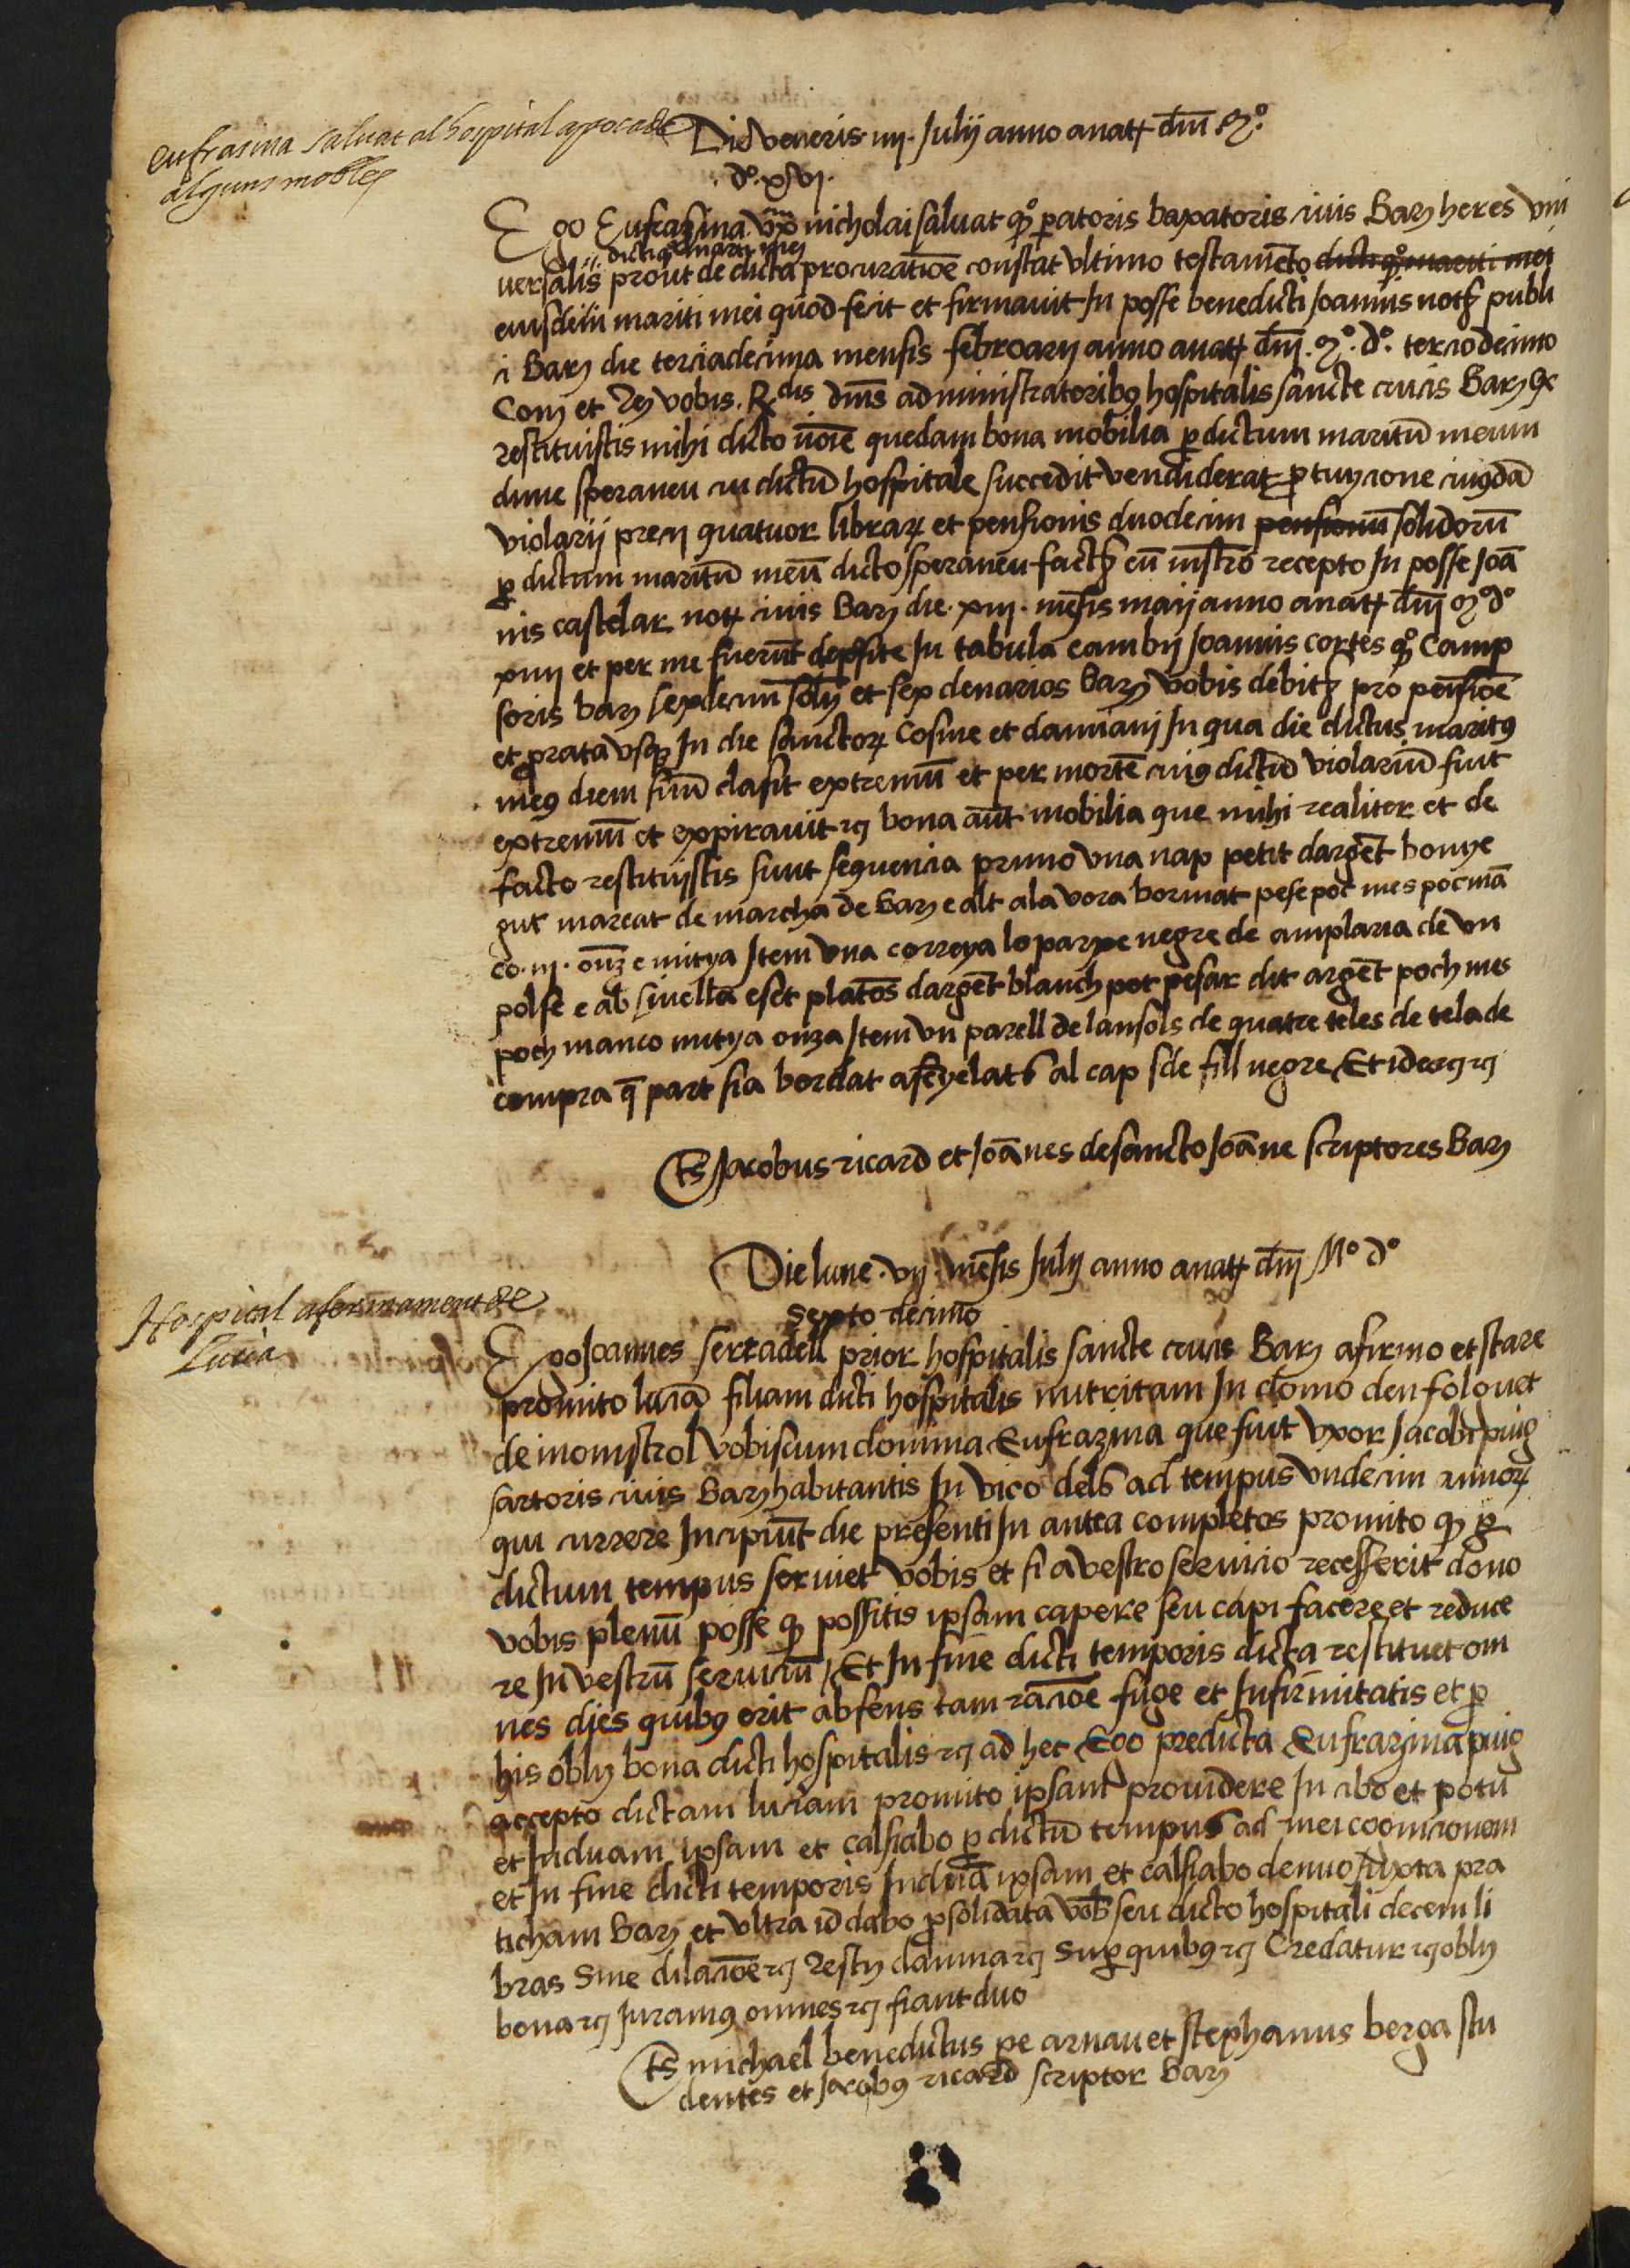 eufrasina saluat al hospital apoca de
alguns mobles
Die veneris .iiij. Julij anno anatt dni Mº
.dº. xvj.
Ego Eufrasina vxor nicholai saluat qº patoris baxatoris civis Barñ heres vni
dicti qº mariti mei
versalis prout de dicta procuratioe constat vltimo testameto dicti qº mariti mei
eiusdem mariti mei quod fecit et firmavit In posse benedicti Joannis nott publi
ci Barñ die terciadecima mensis febroarij anno anatt dni. Mº. dº. terciodecimo
Conf et Re vobis. Rdis dnis administratoribus hospitalis sancte crucis Barñ qª
restituistis mihi dicto noie quedam bona mobilia p dictum maritu meum
dime speraneu cui dictu hospitale succedit vendiderat p tuycione cuiusda
violarij precij quatuor librar et pensionis duodecim pensionu solidoru
p dictum maritu meu dicto speraneu fact cu instro recepto In posse Joa
nis castelar nott civis Barñ die .xiij. mesis maij anno anatt dni Mº dº
xiiij et per me fuerut deposite In tabula cambij Joannis cortes qº Camp
soris barñ sexdecim solij et sex denarios Barñ vobis debitz pro pensioe
et prata vsq In die sanctor Cosme et damiani In qua die dictus maritus
meus diem suu clasit extremu et per morte cuius dictu violariu fuit
extremu et expiravit rc bona aut mobilia que mihi realiter et de
facto restituistis sunt sequencia primo vna nap petit darget bonye
gut marcat de marcha de Barñ e alt ala vora bormat pese poc mes poc ma
co .iij. onz e mitya Item vna correya lo parxe negre de amplaria de vn
polse e ab sivella e set platos darget blanch pot pesar dit arget poch mes
poch manco mitya onza Item vn parell de lansols de quatre teles de tela de
compra q part sia bordat afexyelats al cap de fill negre Et ideo rc rc
Ts Jacobus ricard et Joanes de sancto Joane scriptores Barñ
Die lune .vij. mesis Julij anno anatt dni Mº dº
sexto decimo
Hospital afermament de
Lucia
Ego Joannes serradell prior hospitalis sancte crucis Barñ afirmo et stare
promito lucia filiam dicti hospitalis nutritam In domo den folquet
de monistrol vobiscum domina Eufrazina que fuit vxor Jacobi puig
sartoris civis Barñ habitantis In vico dels ad tempus vndecim annor
qui currere Incipiut die presenti In antea completos promito q p
dictum tempus serviet vobis et si a vestro servicio recesserit dono
vobis plenu posse q possitis ipsam capere seu capi facere et reduce
re In vestru serviciu / Et In fine dicti temporis dicta restituet om
nes dies quibus erit absens tam racioe fuge et Infirmitatis et p
his oblij bona dicti hospitalis rc ad hec Ego predicta Eufrazina puig
accepto dictam luciam promito ipsam providere In cibo et potu
et Induam ipsam et calsiabo p dictu tempus ad mei cognicionem
et In fine dicti temporis Indua ipsam et calsiabo denuo Juxta pra
ticham Barñ et vltra id dabo p solidata vob seu dicto hospitali decem li
bras sine dilacioe rc resty damna rc sup quibus rc Credatur rc oblij
bona rc Juramus omnes rc fiant duo
Ts michael benedictus pe arnau et stephanus berga stu
dentes et Jacobus ricard scriptor Barñ